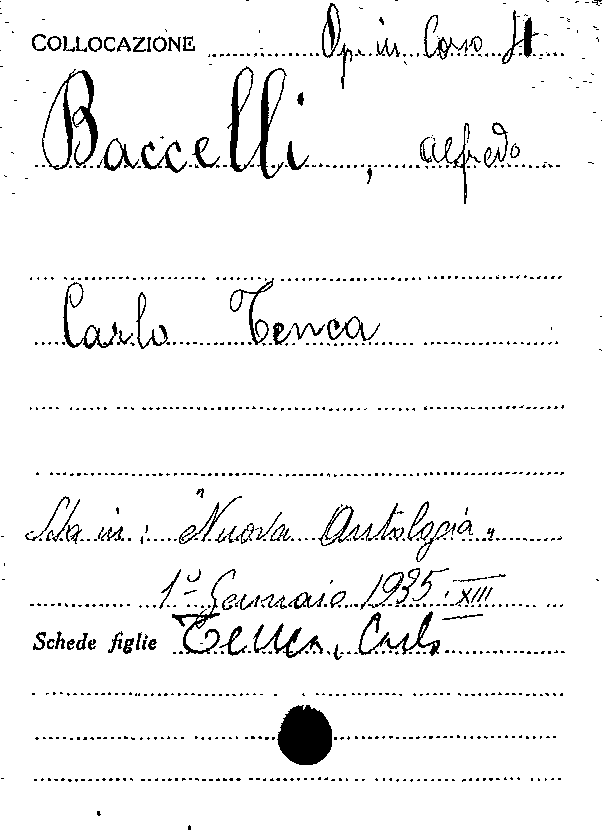 COLLOCAZIONE Op. in Corso
Baccelli, Alfredo
Carlo Tenca
Sta in: "Nuova Antologia„
1º Gennaio 1935. XIII
Schede figlie Tenca, Carlo